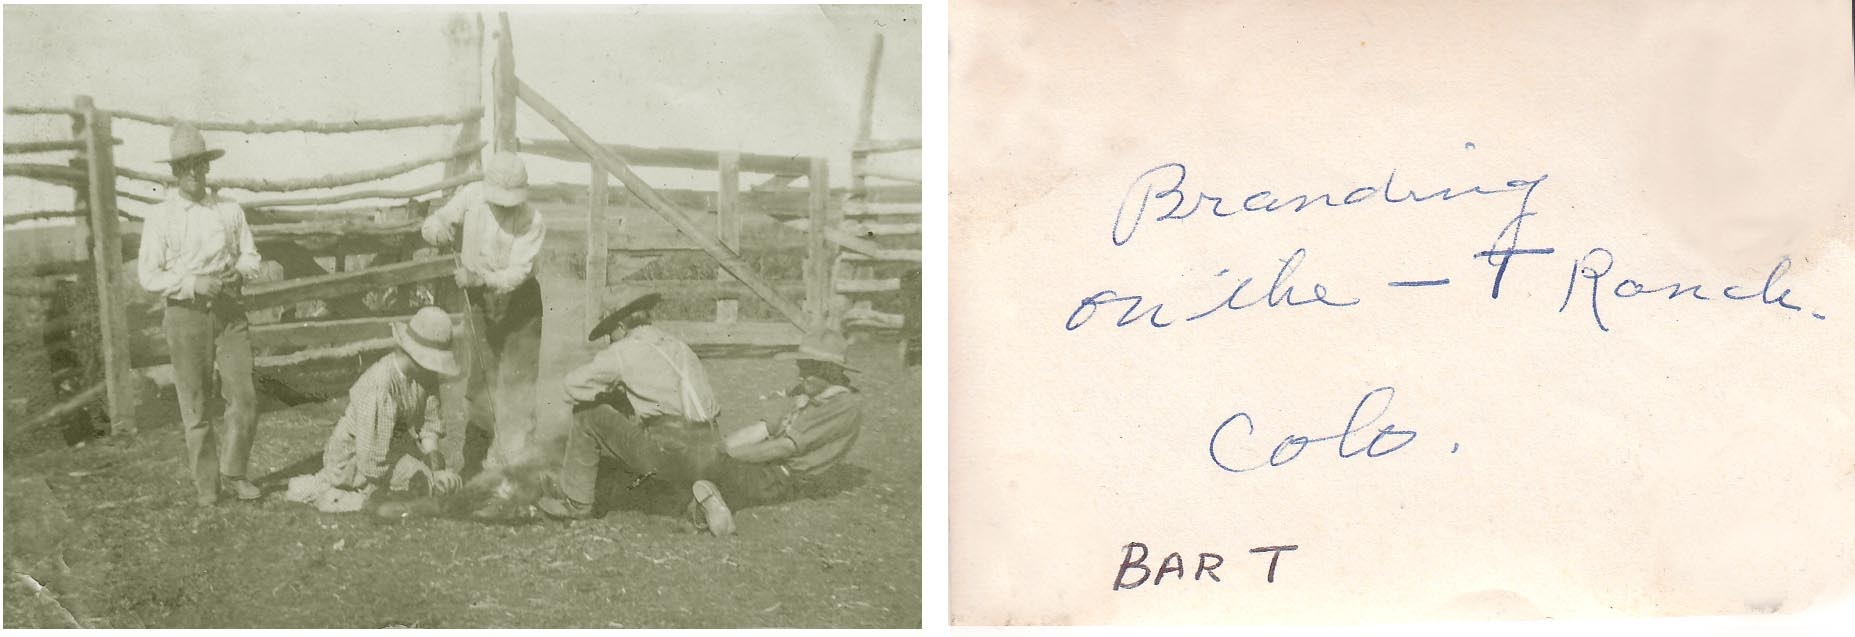 Branding
on the – T Ranch.
Colo.
BAR T